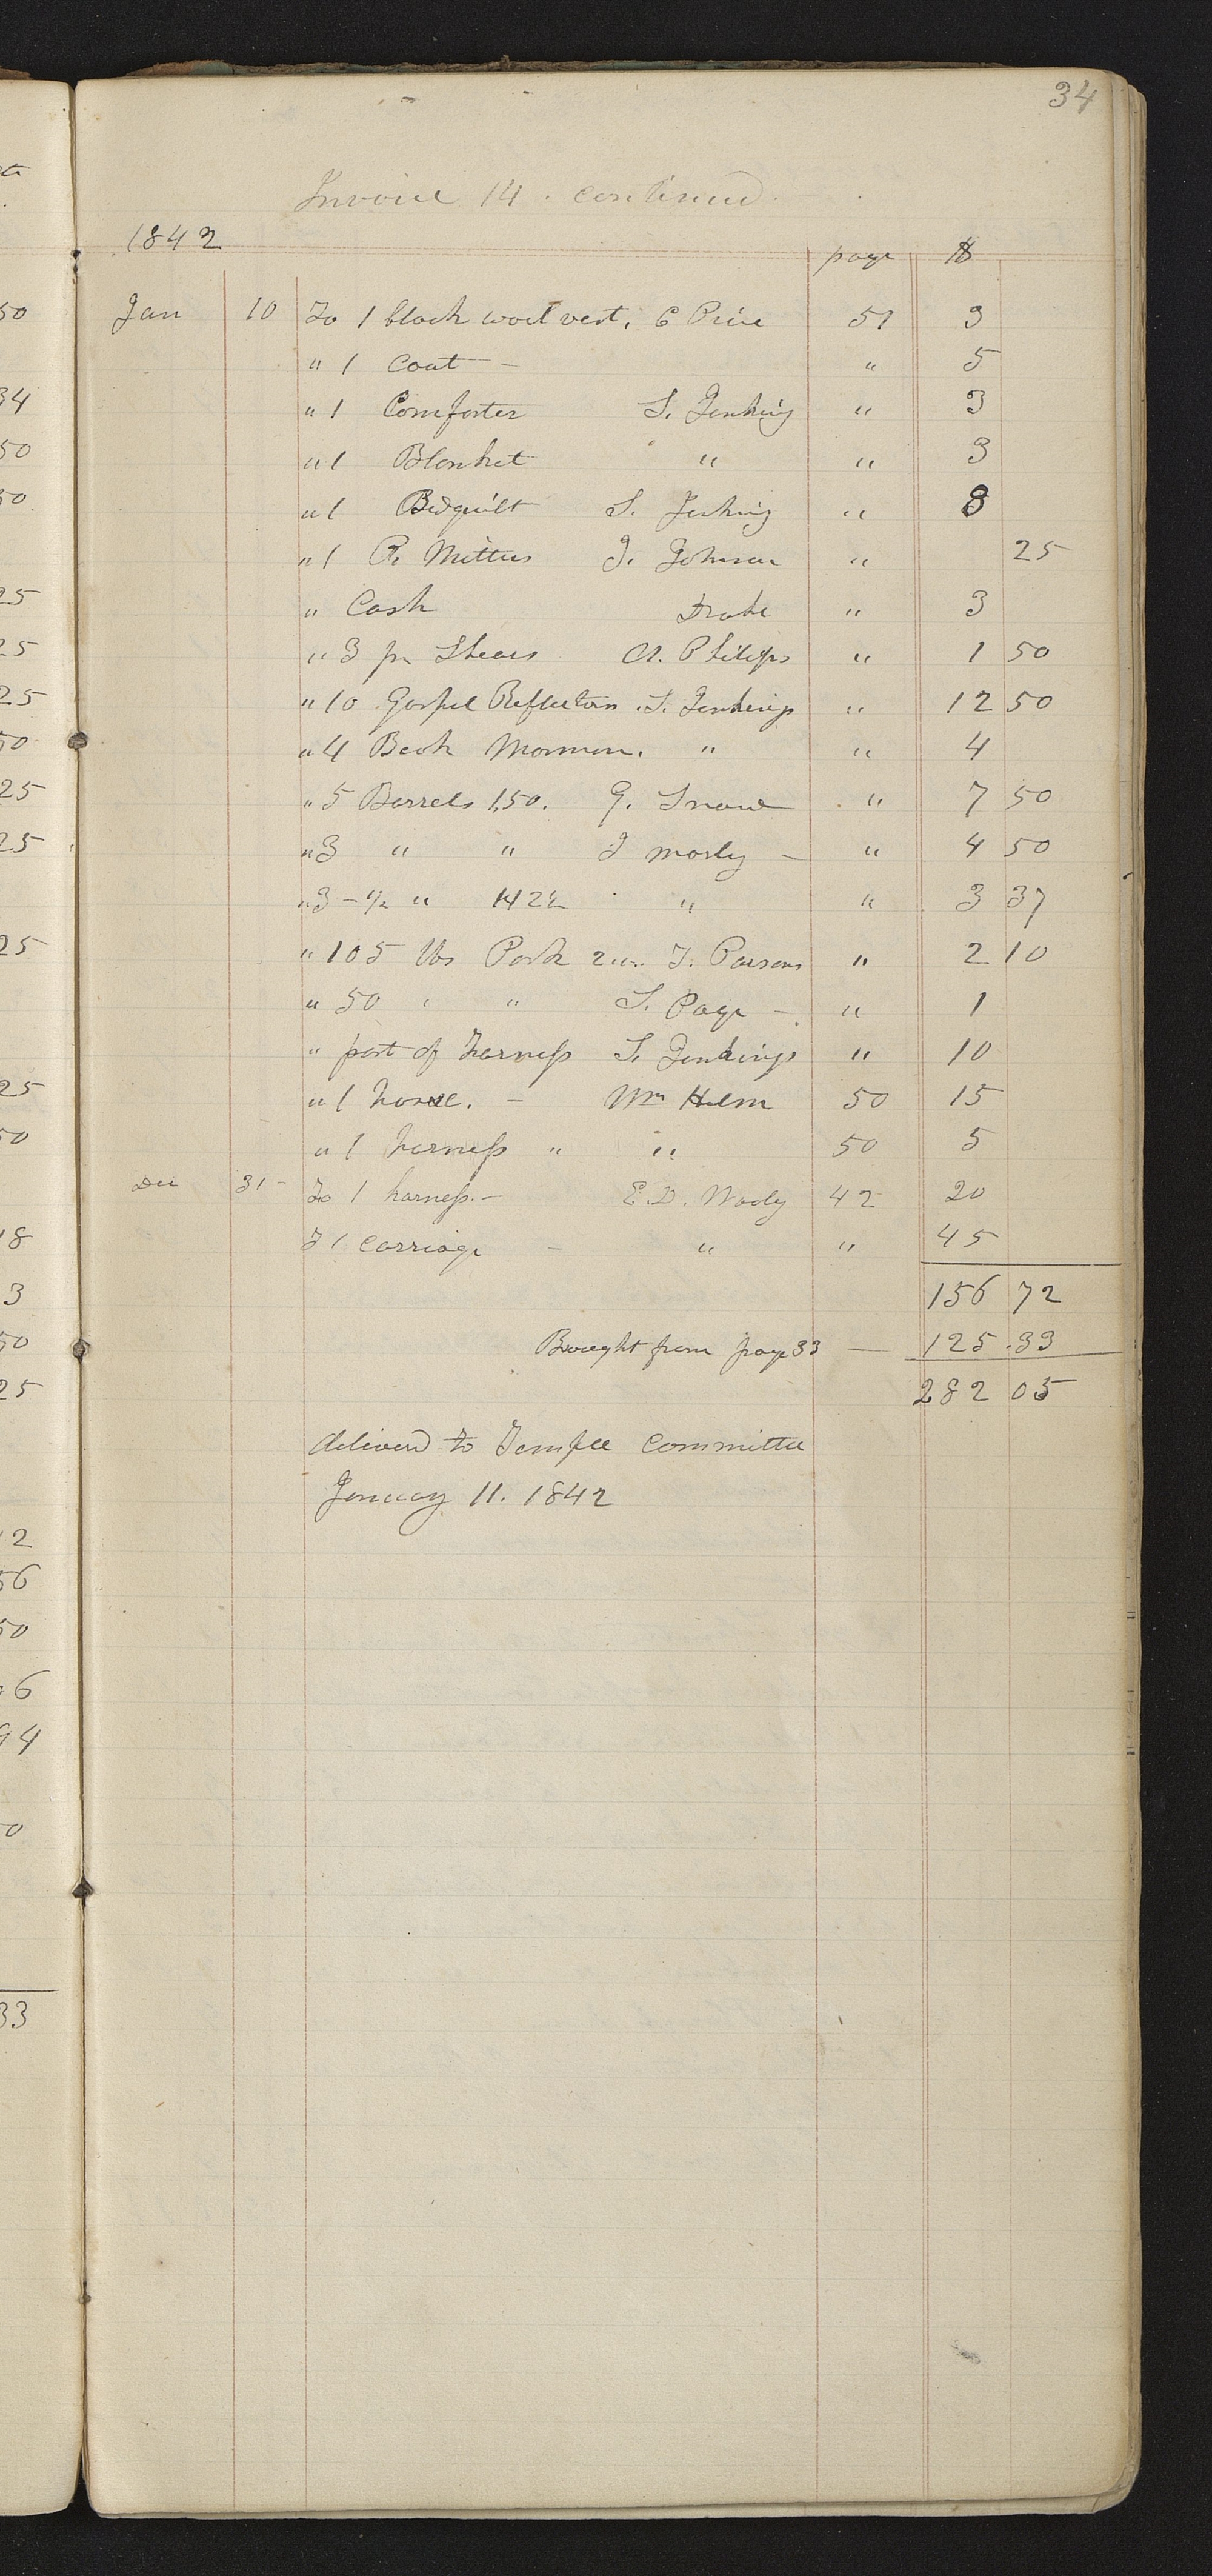 34
Invoice 14. continued.
1842
page $
Jan 10 To 1 black vest, C Price 51 3
" 1 Coat - " 5
" 1 Comforter S. Jenkins " 3
" 1 Blanket " " 3
" 1 Bedquilt S. Jenkins " 8
" 1 P. Mittens J. Johnson " 25
" Cash Drake " 3
" 3 pr Shears A. Philips " 1 50
" 10 Gospel Reflectors S. Jenkings " 12 50
" 4 Book Mormon. " " 4
" 5 Barrels 1,50. G. Snow " 7 50
" 3 " " I morly - " 4 50
" 3 - ½ " " " 3 37
" 105 lbs Pork T. Parsons " 2 10
" 50 " " S. Page - " 1
" part of harness S. Jenkings " 10
" 1 horse. - Wm Helm 50 15
" 1 harness " " 50 5
Dec 31 - To 1 harness. - E.D. Wooly 42 20
T 1 carriage - " " 45
156 72
Brought from page 33 — 125.33
282 05
delivered to Temple committee
January 11. 1842
50
34
50
50
25
25
25
50
25
25
25
25
50
18
3
50
25
12
56
50
6
94
0
33